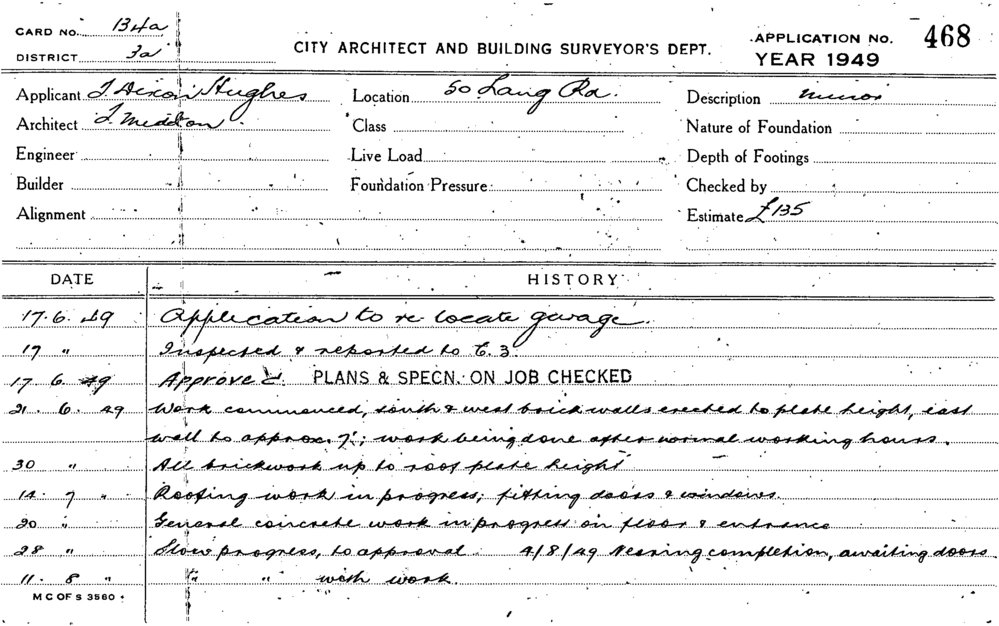 CARD NO. 134a
DISTRICT 3a
CITY ARCHITECT AND BUILDING SURVEYOR'S DEPT.
APPLICATION No. 468
YEAR 1949
Applicant J. Dixon Hughes Location 50 Lang Rd. Description minor
Architect J. Meddon Class Nature of Foundation
Engineer Live Load Depth of Footings
Builder Foundation Pressure Checked by
Alignment Estimate £135
DATE HISTORY
17. 6. 49 Application to re-locate garage.
17 " Inspected & reported to C. 3.
17. 6. 49 Approved. PLANS & SPECN. ON JOB CHECKED
21. 6. 49 Work commenced, south & west brick walls erected to plate height, east
wall to approx. 7'; work being done after normal working hours.
30 " All brickwork up to roof plate height
14. 7 " Roofing work in progress; fitting doors & windows.
20 " General concrete work in progress on floor & entrance
28 " Slow progress, to approval 4/8/49 Nearing completion, awaiting doors
11. 8 " " " with work.
M C OF S 3560